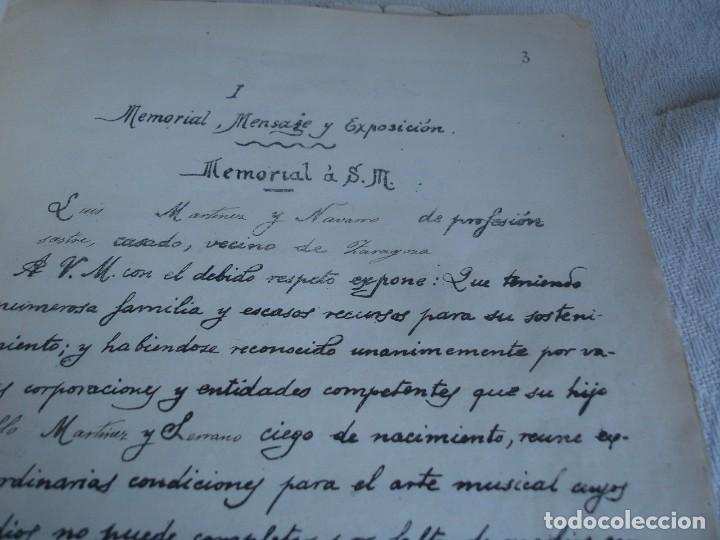 3
I
Memorial, Mensaje y Exposición.
Memorial à S.M.
Luis Martinez y Navarro de profesión
sastre, casado, vecino de Zaragoza
A V. M. con el debido respeto expone: Que teniendo
numerosa familia y escasos recursos para su sosteni-
miento; y habiendose reconocido unanimemente por va-
s corporaciones y entidades competentes que su hijo
llo Martinez y Serrano ciego de nacimiento, reune ex-
ordinarias condiciones para el arte musical cuyos
dios no puede completar por falta de
todocoleccion.net